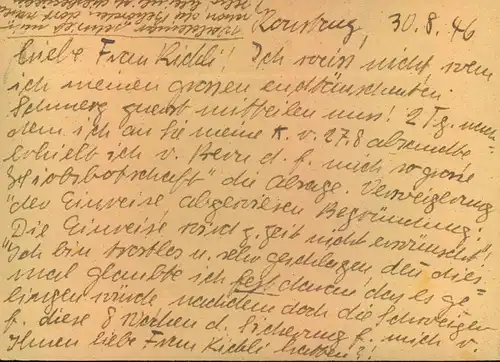 Konstnz, 30.8.46
Liebe Frau Richli! Ich weiss nicht wem
ich meinen grossen enttäuschenten
Schmerz zuerst mitteilen muss! 2 Tg. nach
dem ich an Sie meine K. v. 27.8 absandte
erhielt ich v. Bern d. f. mich so grosse
"Hiobsbotschaft" die Absage. Verweigerung
"der Einreise abgewiesen Begründung:
Die Einreise wird z. Zeit nicht erwünscht!"
Ich bin trostlos u. sehr geschlagen, den dies
mal glaubte ich fest daran, das es ge
lingen würde nachdem doch die Schweizer
f. diese 8 Wochen d. Sicherung f. mich v.
Ihnen liebe Frau Richli hatten?!